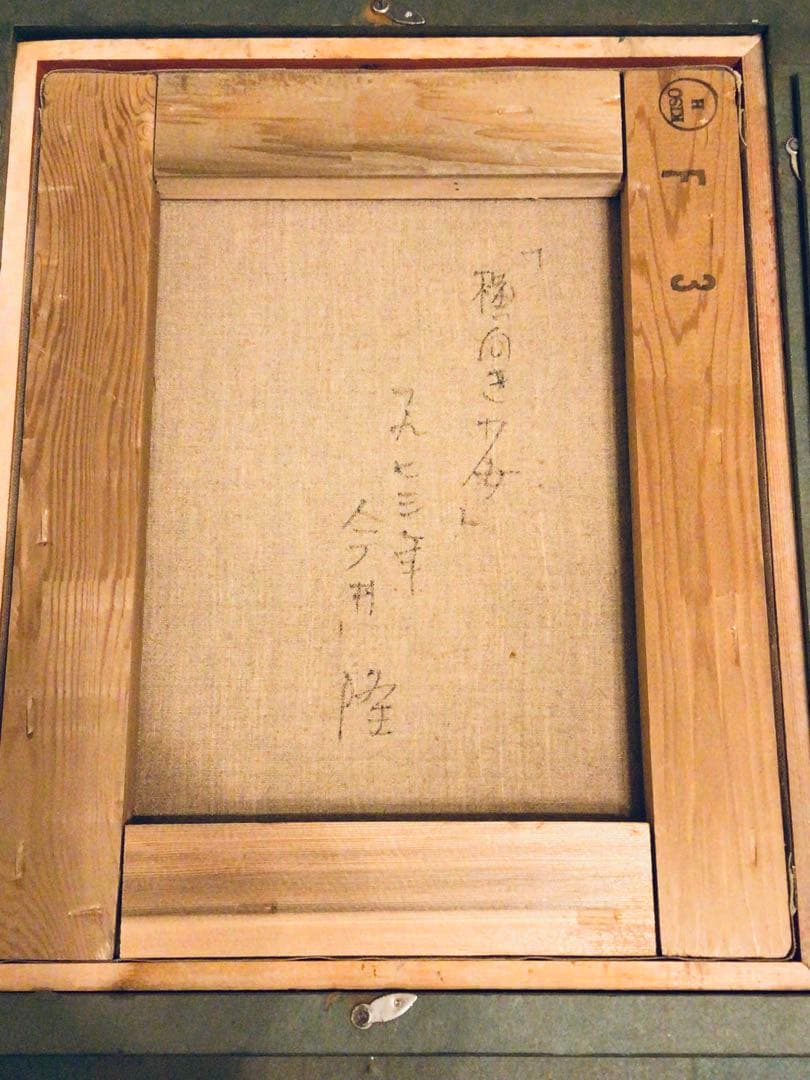 「横向き少女」
一九七三年
今井 隆
KISO H
F 3